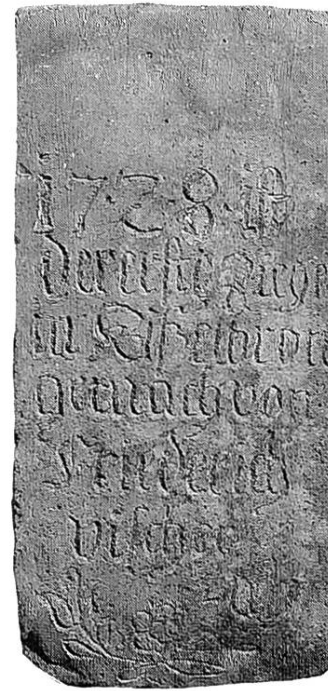 1728 ist
der erste Ziege
in Eißelbron
gemach von
Friederich
vischer